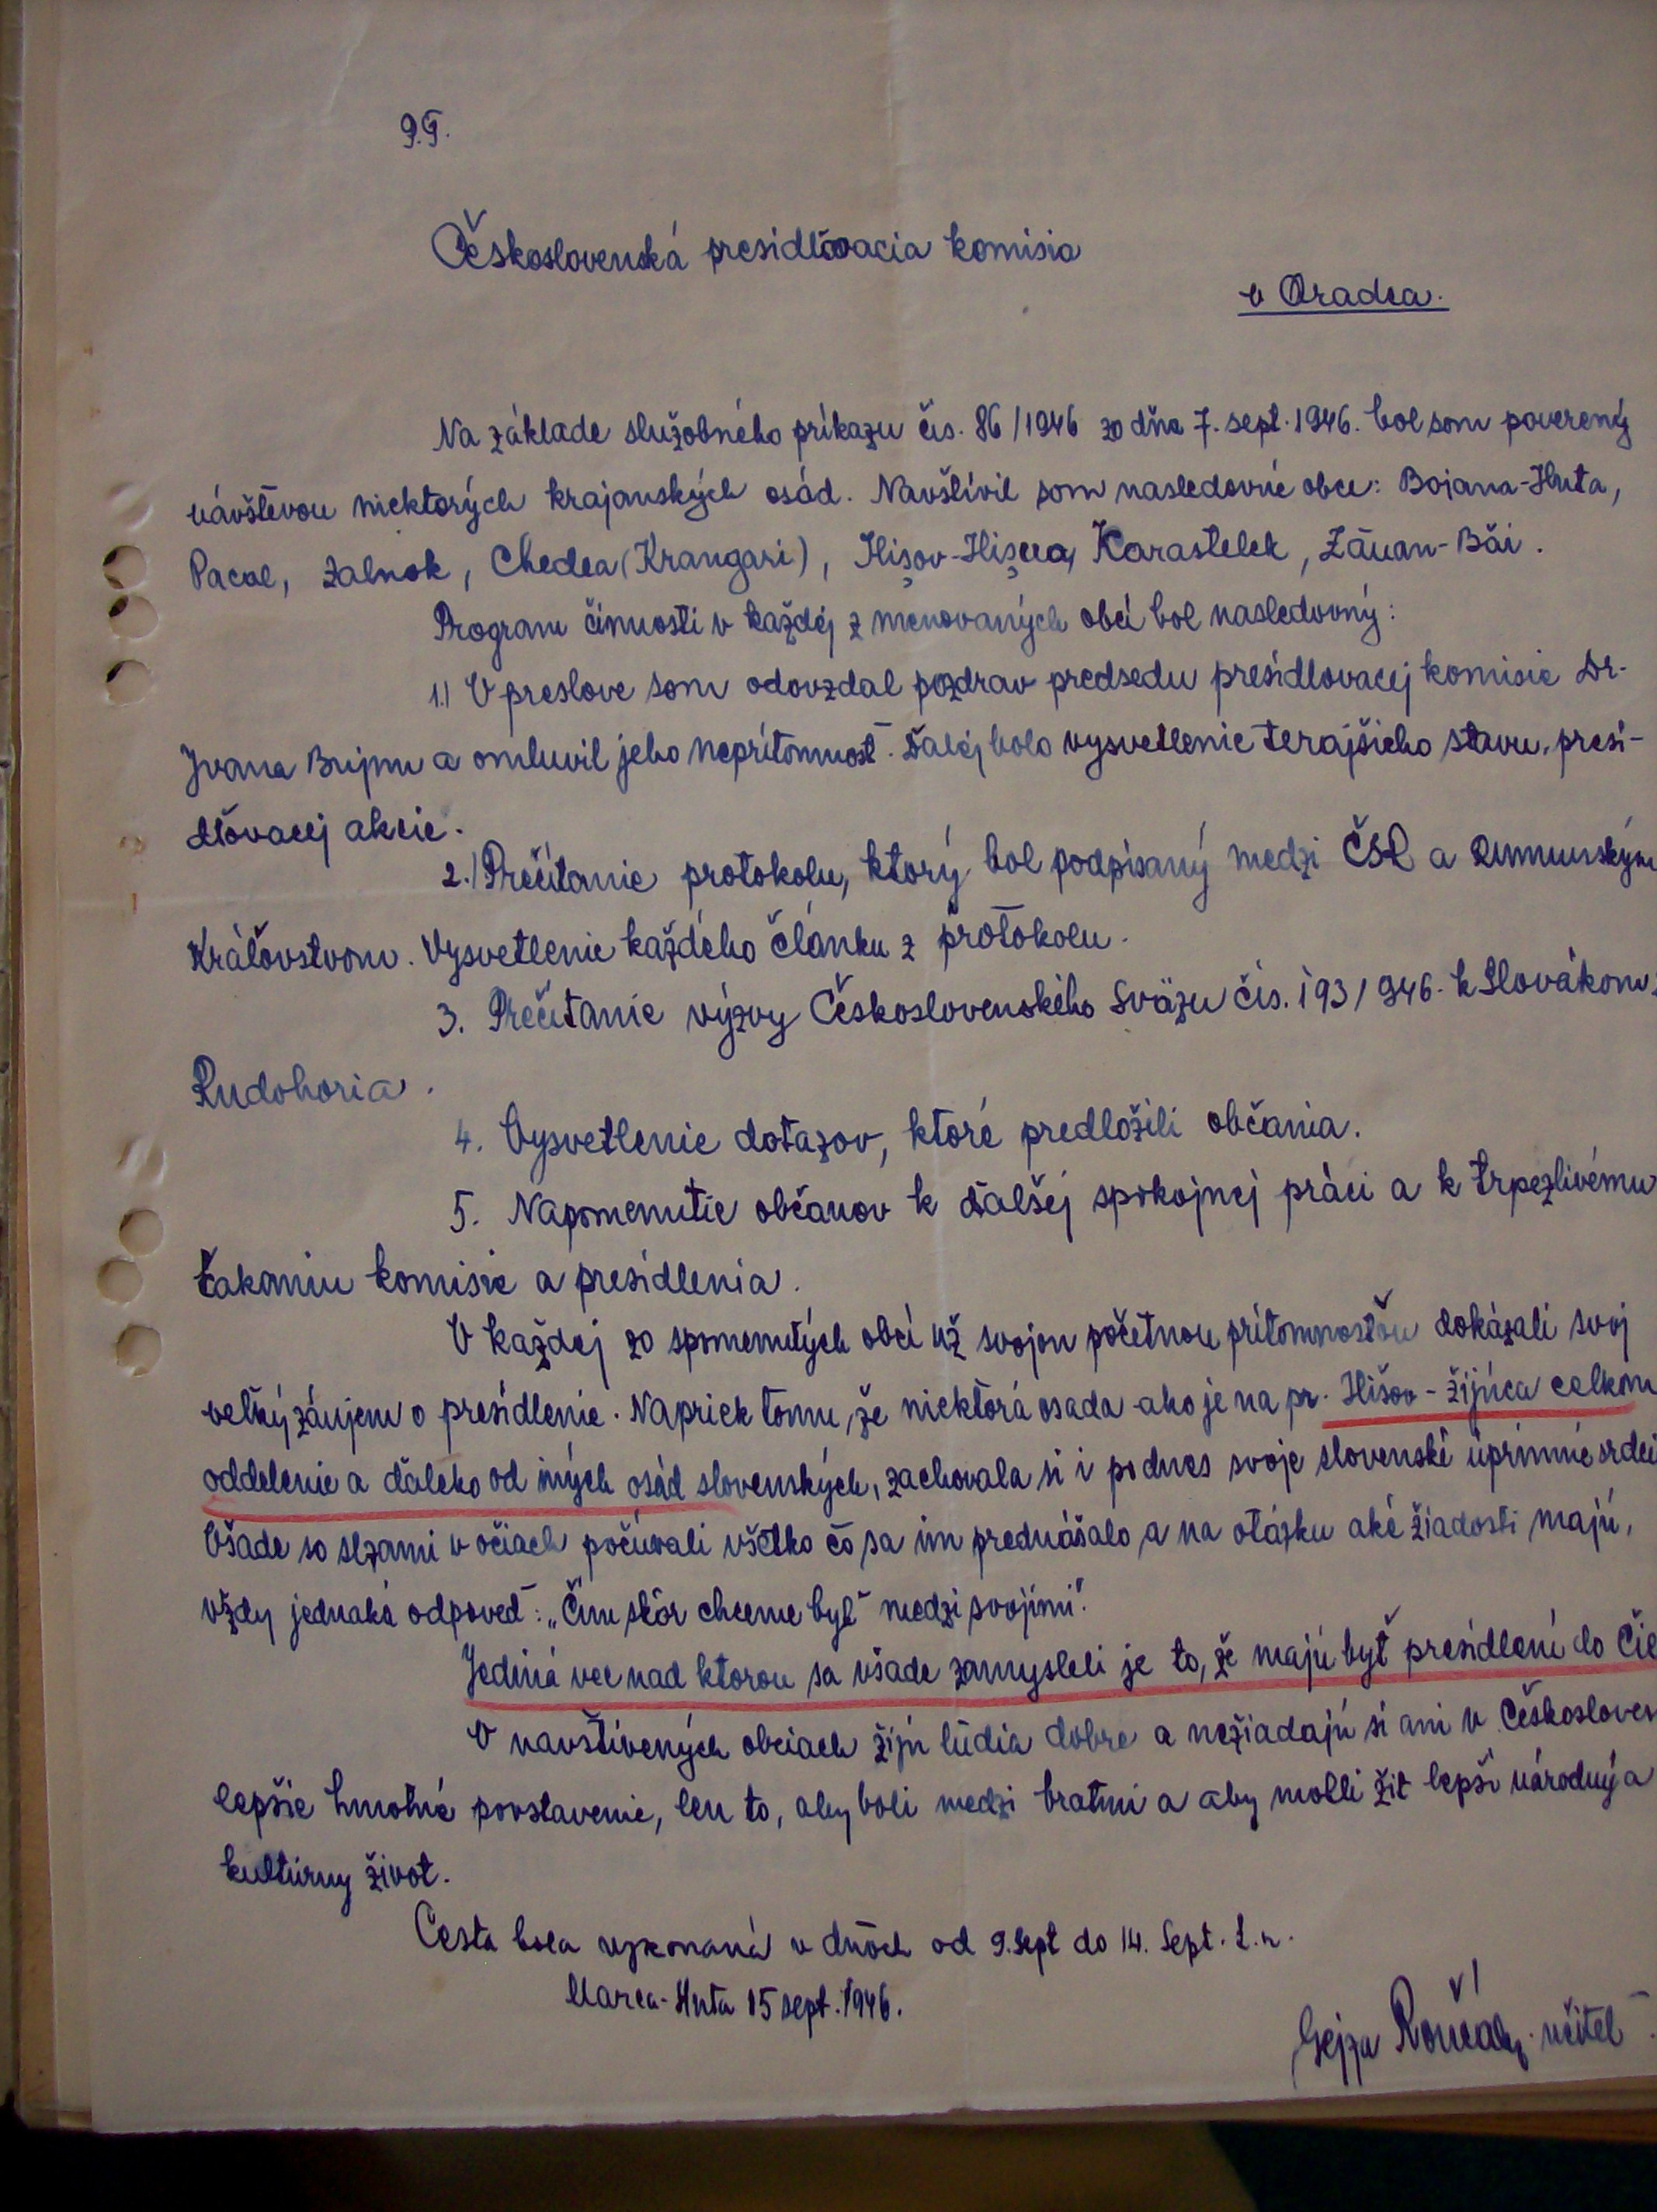 Československá presidlovacia komisia
v Oradea.
Na základe služobného príkazu čís. 86/1946 zo dňa 7. sept. 1946. bol som poverený
návštevou niektorých krajanských osád. Navštívil som nasledovné obce: Bojana-Huta,
Pacal, Zalnok, Chedea (Krangari), Hișov-Hișcea, Karastelek, Zăuan-Băi.
Program činnosti v každej z menovaných obcí bol nasledovný:
1.) V preslove som odovzdal pozdrav predsedu presídlovacej komisie Dr.
Ivana Bujnu a omluvil jeho neprítomnosť. Ďalej bolo vysvetlenie terajšieho stavu, presi-
dľovacej akcie.
2.) Prečítanie protokolu, ktorý bol podpísaný medzi ČSR a Rumunským
Kráľovstvom. Vysvetlenie každého článku z protokolu.
3. Prečítanie výzvy Československého Sväzu čís. 193/946. k Slovákom z
Rudohoria.
4. Vysvetlenie dotazov, ktoré predložili občania.
5. Napomenutie občanov k ďalšej spokojnej práci a k trpezlivému
čakaniu komisie a presídlenia.
V každej zo spomenutých obcí už svojou početnou prítomnosťou dokázali svoj
veľký záujem o presídlenie. Napriek tomu, že niektorá osada ako je na pr. Hišov - žijúca celkom
oddelenie a ďaleko od iných osád slovenských, zachovala si i podnes svoje slovenské úprimné srdci
Všade so slzami v očiach počúvali všetko čo sa im prednášalo, a na otázku aké žiadosti majú,
vždy jednaká odpoveď: „Čím skôr chceme byť medzi svojími."
Jediná vec nad ktorou sa všade zamysleli je to, že majú byť presídlení do Čie
V navštívených obciach žijú ľudia dobre a nežiadajú si ani v Českosloven
lepšie hmotné povstavenie, len to, aby boli medzi bratmi a aby mohli žiť lepší národný a
kultúrny život.
Cesta bola vykonaná v dňoch od 9. sept do 14. Sept. t. r.
Marca-Huta 15 sept. 1946.
Gejza učiteľ.